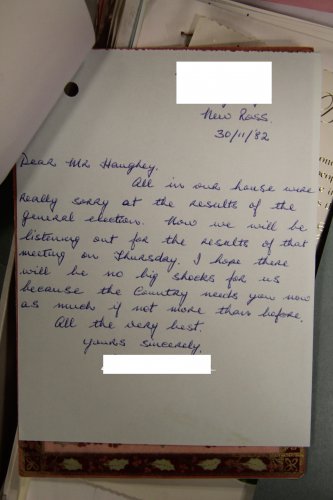 New Ross.
30/11/82
Dear Mr Haughey.
All in our house were
really sorry at the results of the
general election. Now we will be
listening out for the results of that
meeting on Thursday. I hope there
will be no big shocks for us
because the Country needs you now
as much if not more than before.
All the very best.
Yours sincerely,